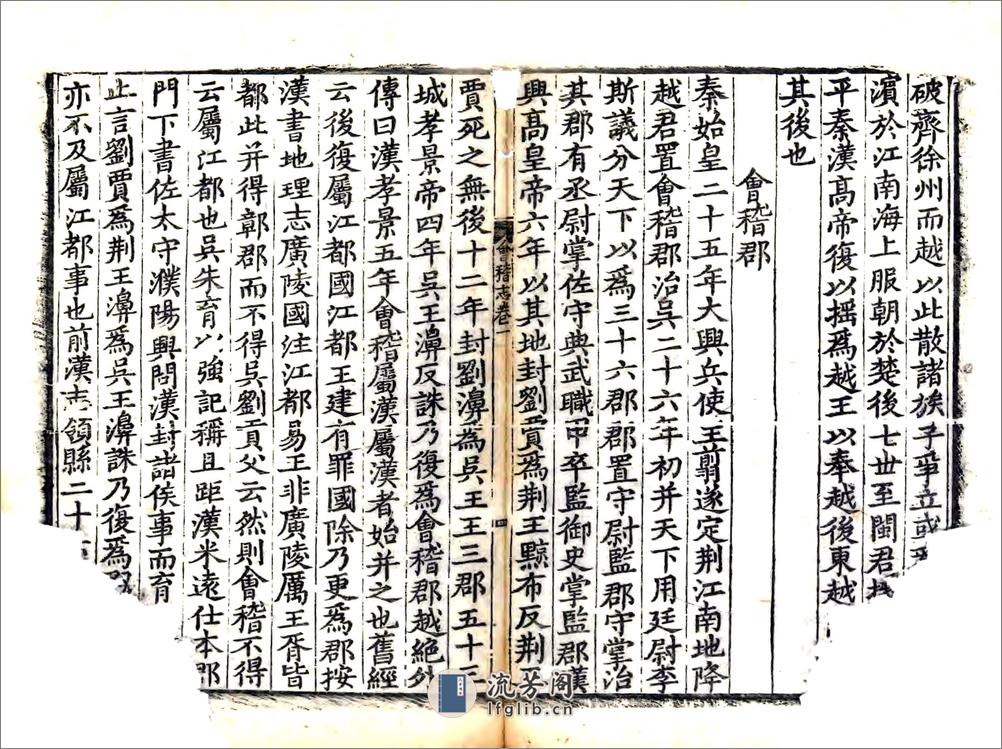 破齊徐州而越以此散諸族子爭立或
濵於江南海上服朝於楚後七世至閩君
平秦漢髙帝復以揺爲越王以奉越後東越
其後也
會稽郡
秦始皇二十五年大興兵使王翦遂定荆江南地降
越君置會稽郡治吳二十六年初并天下用廷尉李
斯議分天下以爲三十六郡郡置守尉監郡守掌治
其郡有丞尉掌佐守典武職甲卒監御史掌監郡漢
興髙皇帝六年以其地封劉賈爲荆王黥布反荆王
會稽志卷一
四
賈死之無後十二年封劉濞爲吳王王三郡五十三
城孝景帝四年吳王濞反誅乃復爲會稽郡越絶外
傳曰漢孝景五年會稽屬漢屬漢者始并之也舊經
云後復屬江都國江都王建有罪國除乃更爲郡按
漢書地理志廣陵國注江都易王非廣陵厲王胥皆
都此并得鄣郡而不得吳劉貢父云然則會稽不得
云屬江都也吳朱育以強記稱且距漢未遠仕本郡
門下書佐太守濮陽興問漢封諸侯事而育
止言劉賈爲荆王濞爲吳王濞誅乃復爲郡
亦不及屬江都事也前漢志領縣二十
流芳閣
lfglib.cn